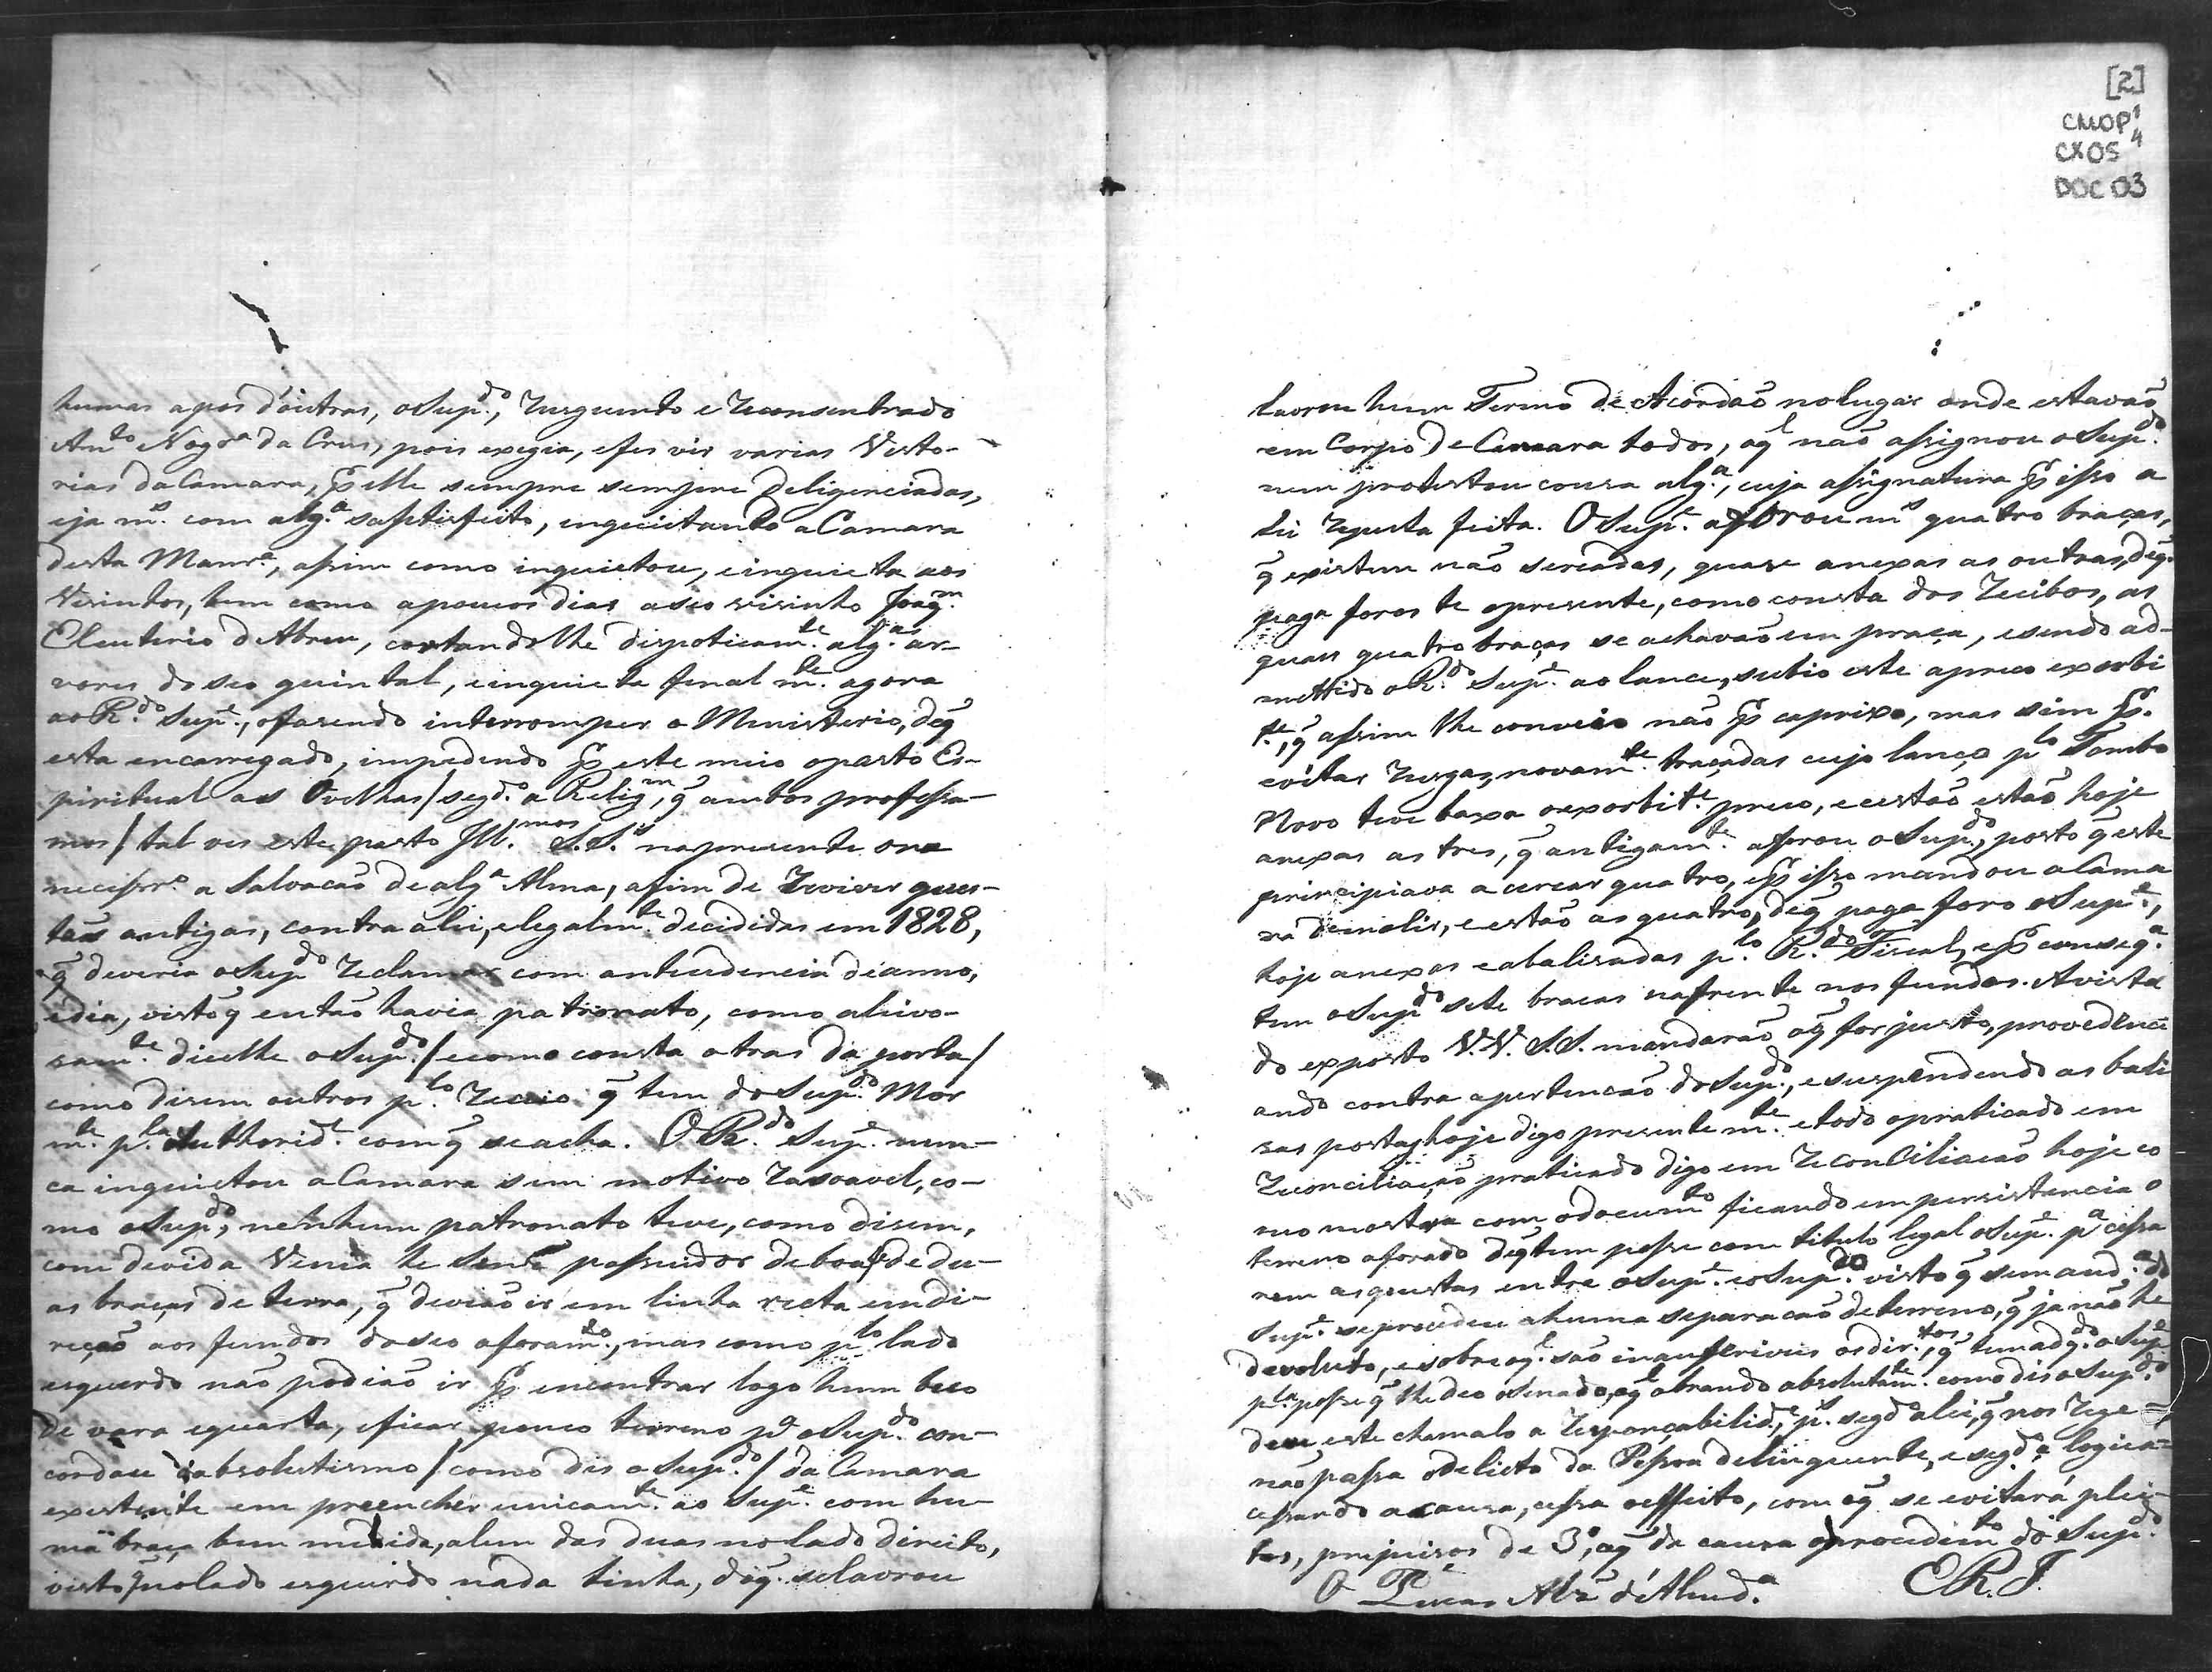 humas apos d'outras, o Sup.do, rusguento e reconsentrado
Ant.o Nogr.a da Crus, pois exegia, e fes vir varias Visto-
rias da Camara, p.r elle sempre sempre deligenciadas,
e ja m.s com alg.a sastisfeito, inquietando a Camara
desta Manr.a, assim como inquietou, e inquieta aos
Visinhos, bem como a poucos dias a seo visinho Joaq.m
Eleuterio d'Abreu, cortando lhe dispoticam.te alg.as ar-
vores do seo quintal, e inquieta final m.te agora
ao R.do Sup.e, o fasendo interromper o Ministerio, de q̃
esta encarregado, impedindo p.r este meio o pasto Es-
piritual as Ovelhas / segd.o a Relig.m, q̃ ambos professa-
mos / tal ves este pasto Ill.mos S.S.s na presente ora
necessr.o a Salvacaõ de alg.a Alma, afim de reviver ques-
tas antigas, contra a lei, e legalm.te decididas em 1828,
q̃ deveria o Sup.do reclamar com antecedencia de anno,
e dia, visto q̃ entaõ havia patronato, como aleivo-
sam.te dicelhe o Sup.do / e como consta a tras da porta /
como disem outros p.lo receio q̃ tem do Sup.do Mor
m.te p.la Authorid.e com q̃ se acha. O R.do Sup.e nun-
ca inquietou a Camara sem motivo rasoavel, co-
mo o Sup.do, nenhum patronato teve, como disem,
com devida Venia he sim possuidor de boa fe de du-
as braças de terra, q̃ deviaõ ir em linha recta em di-
reçaõ aos fundos do seo aforam.to, mas como p.lo lado
esquerdo naõ podiaõ ir p.r encontrar logo hum beco
de vara e quarta, e ficar pouco terreno p.a o Sup.do con-
cordou o absolutismo / como dis o Sup.do / da Camara
existente em preencher unicam.te ao Sup.e com hu-
mã braça bem medida, alem das duas no lado direito,
visto q̃ no lado esquerdo nada tinha, do q̃ se lavrou
[2]
CMOP 1/4
CX05
DOC 03
lavrou hum Termo de Acordaõ no lugar onde estavaõ
em Corpo de Camara todos, o q.l naõ assignou o Sup.do
nem protestou cousa alg.a, cuja assignatura p.r isso a
lei reputa feita. O Sup.e aforou m.s quatro braças,
q̃ existem naõ sercadas, quase anexas as outras, de q̃
paga foros te o presente, como consta dos recibos, as
quais quatro braças se achavaõ em praça, e sendo ad-
mettido o R.do Sup.e ao lance, subio este a preço exorbi
t.e, q̃ assim lhe conveio naõ p.r caprixo, mas sim p.r
evitar rusgas, novam.te traçadas cujo lanço p.lo Tombo
Novo teve baxa o exorbit.e preco, e estaõ estaõ hoje
anexas as tres, q̃ antigam.te aforou o Sup.do, posto q̃ este
principiava a cercar quatro, e p.r isso mandou a Cama
ra demolir, e estaõ as quatro, de q̃ paga foro o Sup.e,
hoje anexas e abalisadas p.lo R.do Fiscal, e p.r conseq.a
tem o Sup.do sete bracas na frente nos fundos. A vista
do exposto V.V. S.S. mandaraõ o q̃ for justo, providenci
ando contra a pertencaõ do Sup.do, e suspendendo as bali
sas postas hoje digo presente m.te e todo o praticado em
reconciliaçaõ praticado digo em reconciliacaõ hoje co-
mo mostra com o docum.to ficando em persistencia o
terreno aforado de q̃ tem posse com titulo legal o Sup.e p.a cessa
rem as questas entre o Sup.e e o Sup.do visto q̃ sem aud.a do
Sup.e se procedeu a huma separacaõ de terreno, q̃ ja naõ he
devoluto, e sobre o q.l saõ inauferiveis os dir.tos, q̃ tem adq.do o Sup.e
p.la posse q̃ lhe deo o Senado, o q.l obrando absolutam.te como dis o Sup.do
deve este chamalo a responçabilid.e, p.s segd.o a lei q̃ nos rege
naõ passa o delicto da Pessoa delinquente, e segd.o a logica
cessando a causa, cessa o effeito, com o q̃ se evitará plei-
tos, prejuisos de 3.o, o q̃ da causa o procedim.to do Sup.do
O P.e Lucas Alz̃ d'Almd.a E.R.J.